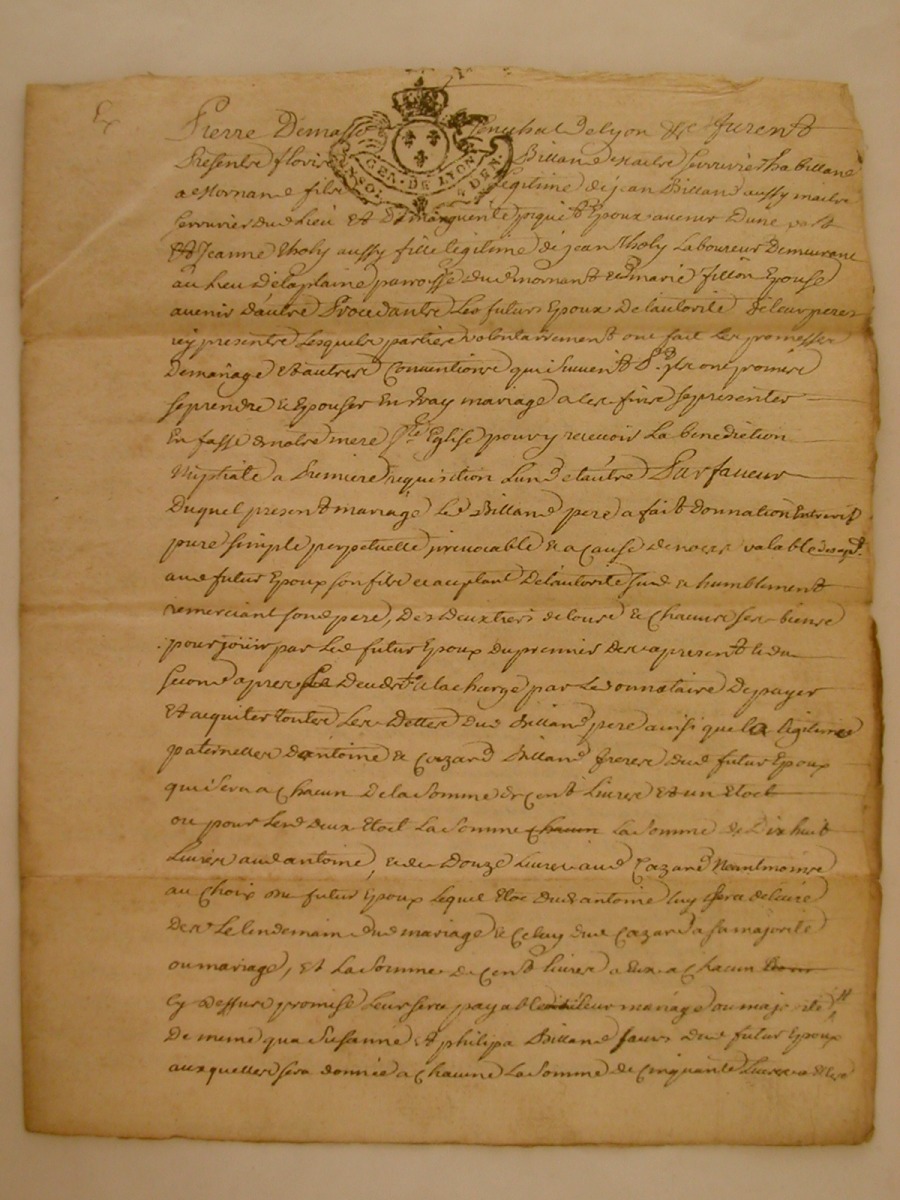 GEN. DE LYON
Pierre Dema senechal Delyon &c furent
Presentz floris Billand maitre serrurier habitant
a Mornand fils legitime de jean Billand aussy maitre
serrurier dud Lieu Et De marguerite Epoux avenir Dune part
Et Jeanne tholy aussy fille legitime de jean tholy Laboureur Demeurant
au Lieu delaplaine parroisse dud mornant et marie fillon Epouse
avenir d'autre Procedantz Les futurs Epoux De lautorité de leur peres
icy presentz Lesquels parties volontairement ont fait les promesses
Demariage Et autres Conventions qui suivent sçr ilz ont promis
seprendre & Epouser En vray mariage a les fins sepresenter
En fasse denotre mere Ste Eglise pour y recevoir La benediction
Nuptiale a Premiere requisition Lun d et autre Par faveur
Duquel present mariage Led Billand pere a fait donnation Entre vifs
pure simple perpetuelle irrevocable & a cause denoces valable
aud futur Epoux son fils acceptant De lautorité sud & humblement
remerciant sond pere, Des Deux tiers de tous & chacuns ses biens
pour jouir par Led futur Epoux du premier des apresent & du
second apres Le Deced & a la charge par Le donnataire De payer
Et acquiter toutes Les Dettes dud Billand pere ainsi que la legitimes
paternelles dantoine & Cazard Billand freres dud futur Epoux
qui sera a Chacun De la Somme de cent Livres Et un Etoct
ou pour lesd deux Etoct La Somme chacun La Somme de Dix huit
Livres aud antoine, & de Douze Livres aud Cazard Neantmoins
au Choix du futur Epoux Lequel Etoc dud antoine luy sera delivré
Des Le lendemain dud mariage & Celuy dud Cazard a sa majorité
ou mariage, Et La Somme de cent livres a Eux a Chacun
Cy Dessus promise Leur sera payable leur mariage ou majorité
De meme qua Susanne Et philipa Billand seurs dud futur Epoux
auxquelles sera donnée a Chacune La Somme de cinquante Livres